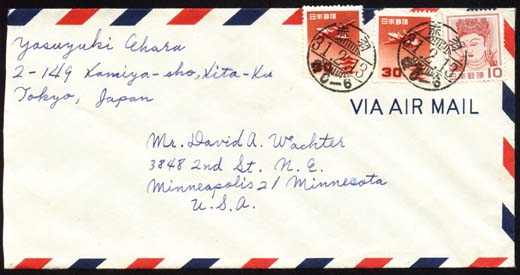 Yasuyuki Ohara
2-149 Kamiya-cho, Kita-Ku
Tokyo, Japan
日本郵便
日本郵便
赤羽
31.2.13
后0-6
30
赤羽
31.2.13
后0-6
日本郵便
10
VIA AIR MAIL
Mr. David A. Wachter
3848 2nd St. N.E.
Minneapolis 21 Minnesota
U.S.A.